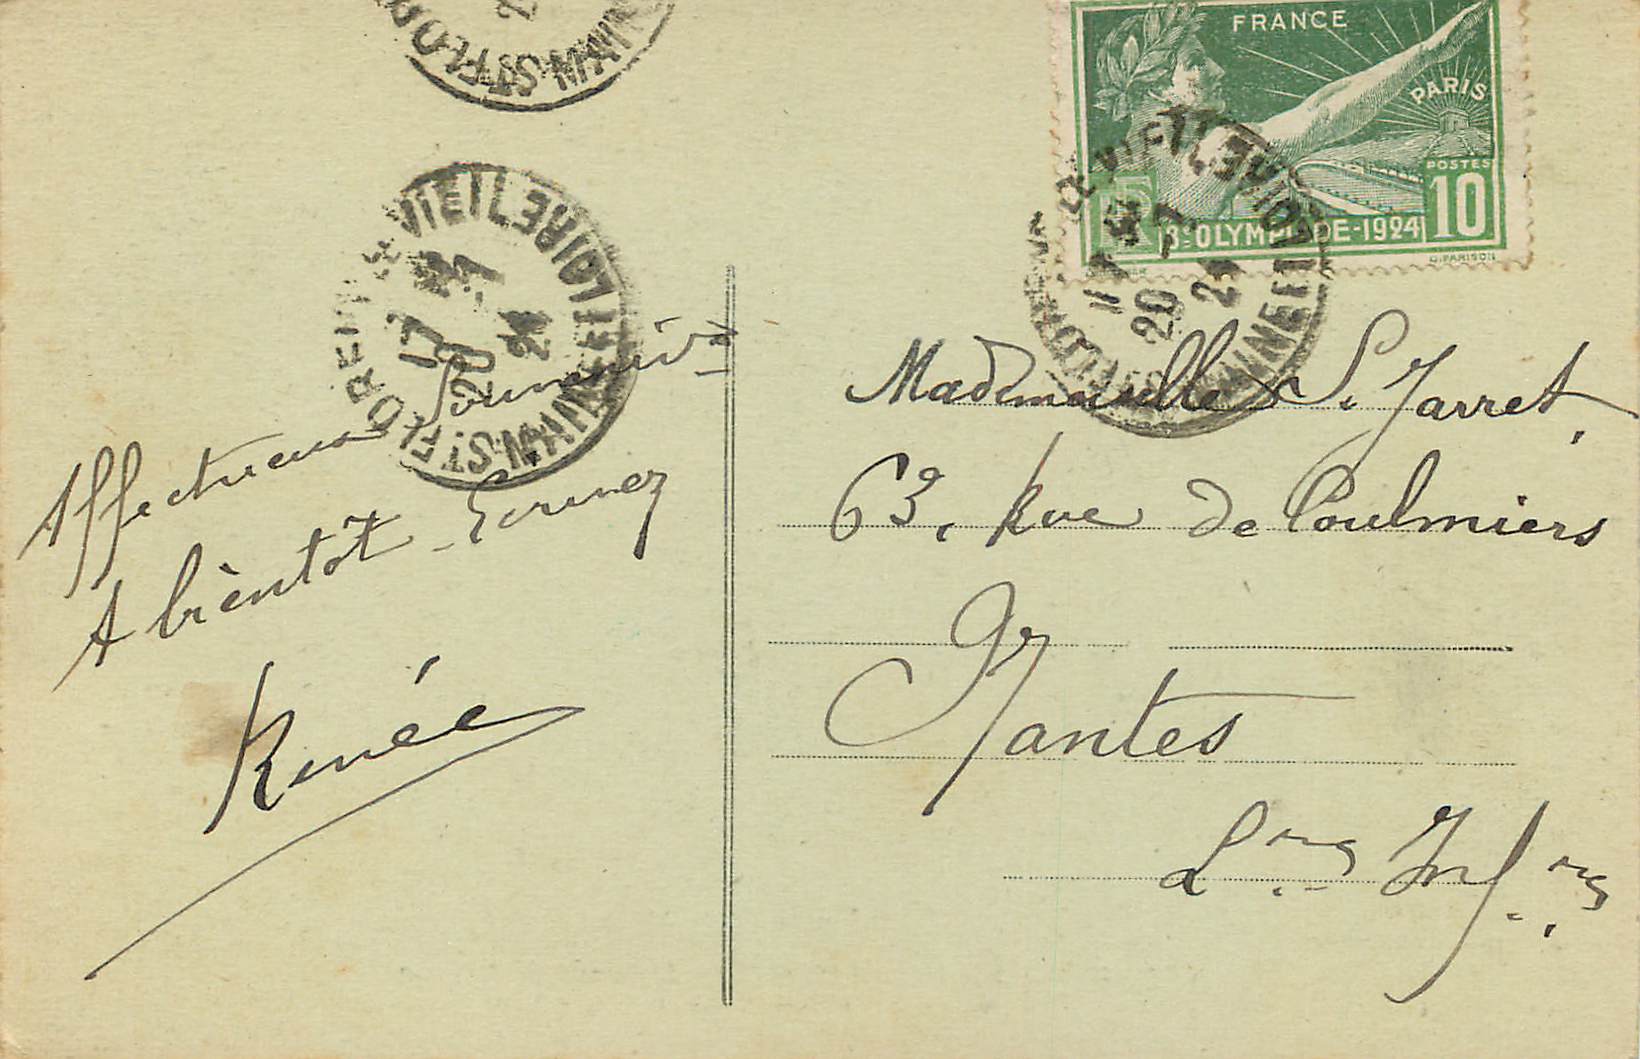 FRANCE
PARIS
POSTES
10
8e OLYMPIADE-1924
G.PARISON
ST FLORENT-LE-VIEIL
MAINE-ET-LOIRE
20 -7
24
Affectueux Souvenirs
A bientôt
Renée
Mademoiselle S. Jarret,
63, Rue de Coulmiers
Nantes
Lre Infre